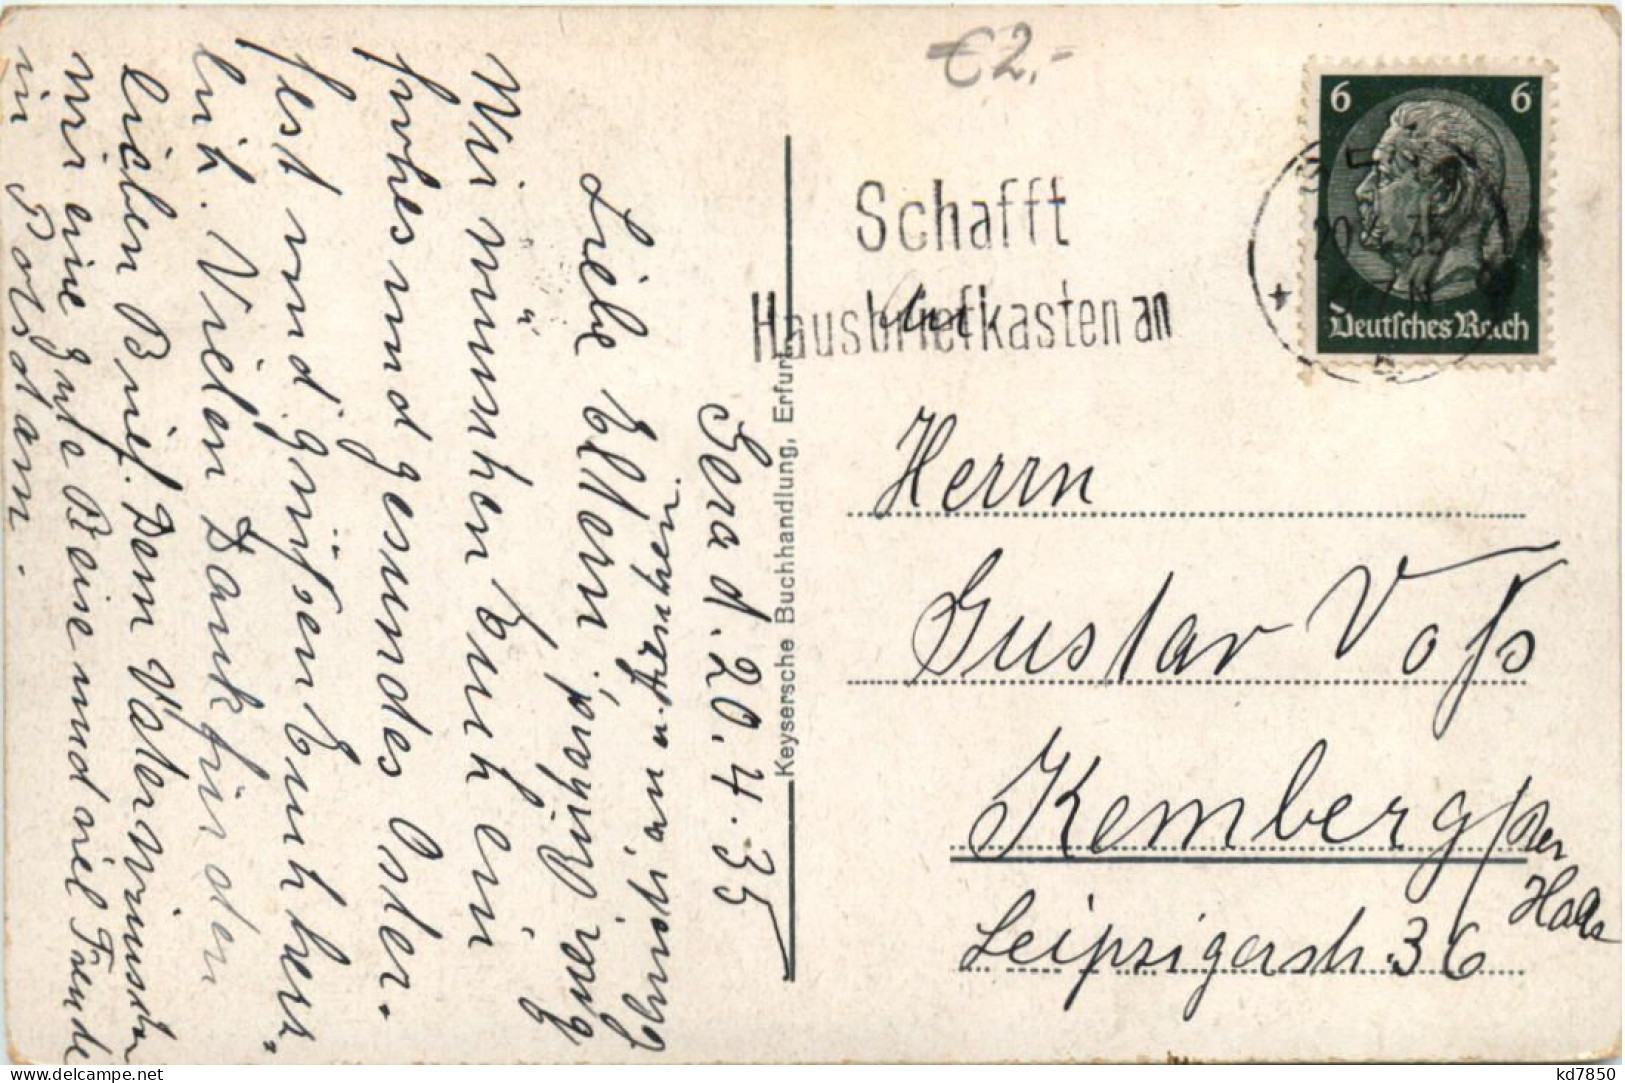 €2.-
6 6
Deutsches Reich
20.4.35
Schafft
Hausbriefkasten an
An
Herrn
Gustav Voß
Kemberg/Bez
Halle
Leipzigerstr. 36
Keysersche Buchhandlung, Erfurt
Gera d. 20.4.35
Liebe Eltern!
Wir wünschen Euch ein
frohes und gesundes Oster-
fest und grüßen Euch herz-
lich. Vielen Dank für den
lieben Brief. Dem Vater wünschen
wir eine gute Reise und viel Freude
in Potsdam.